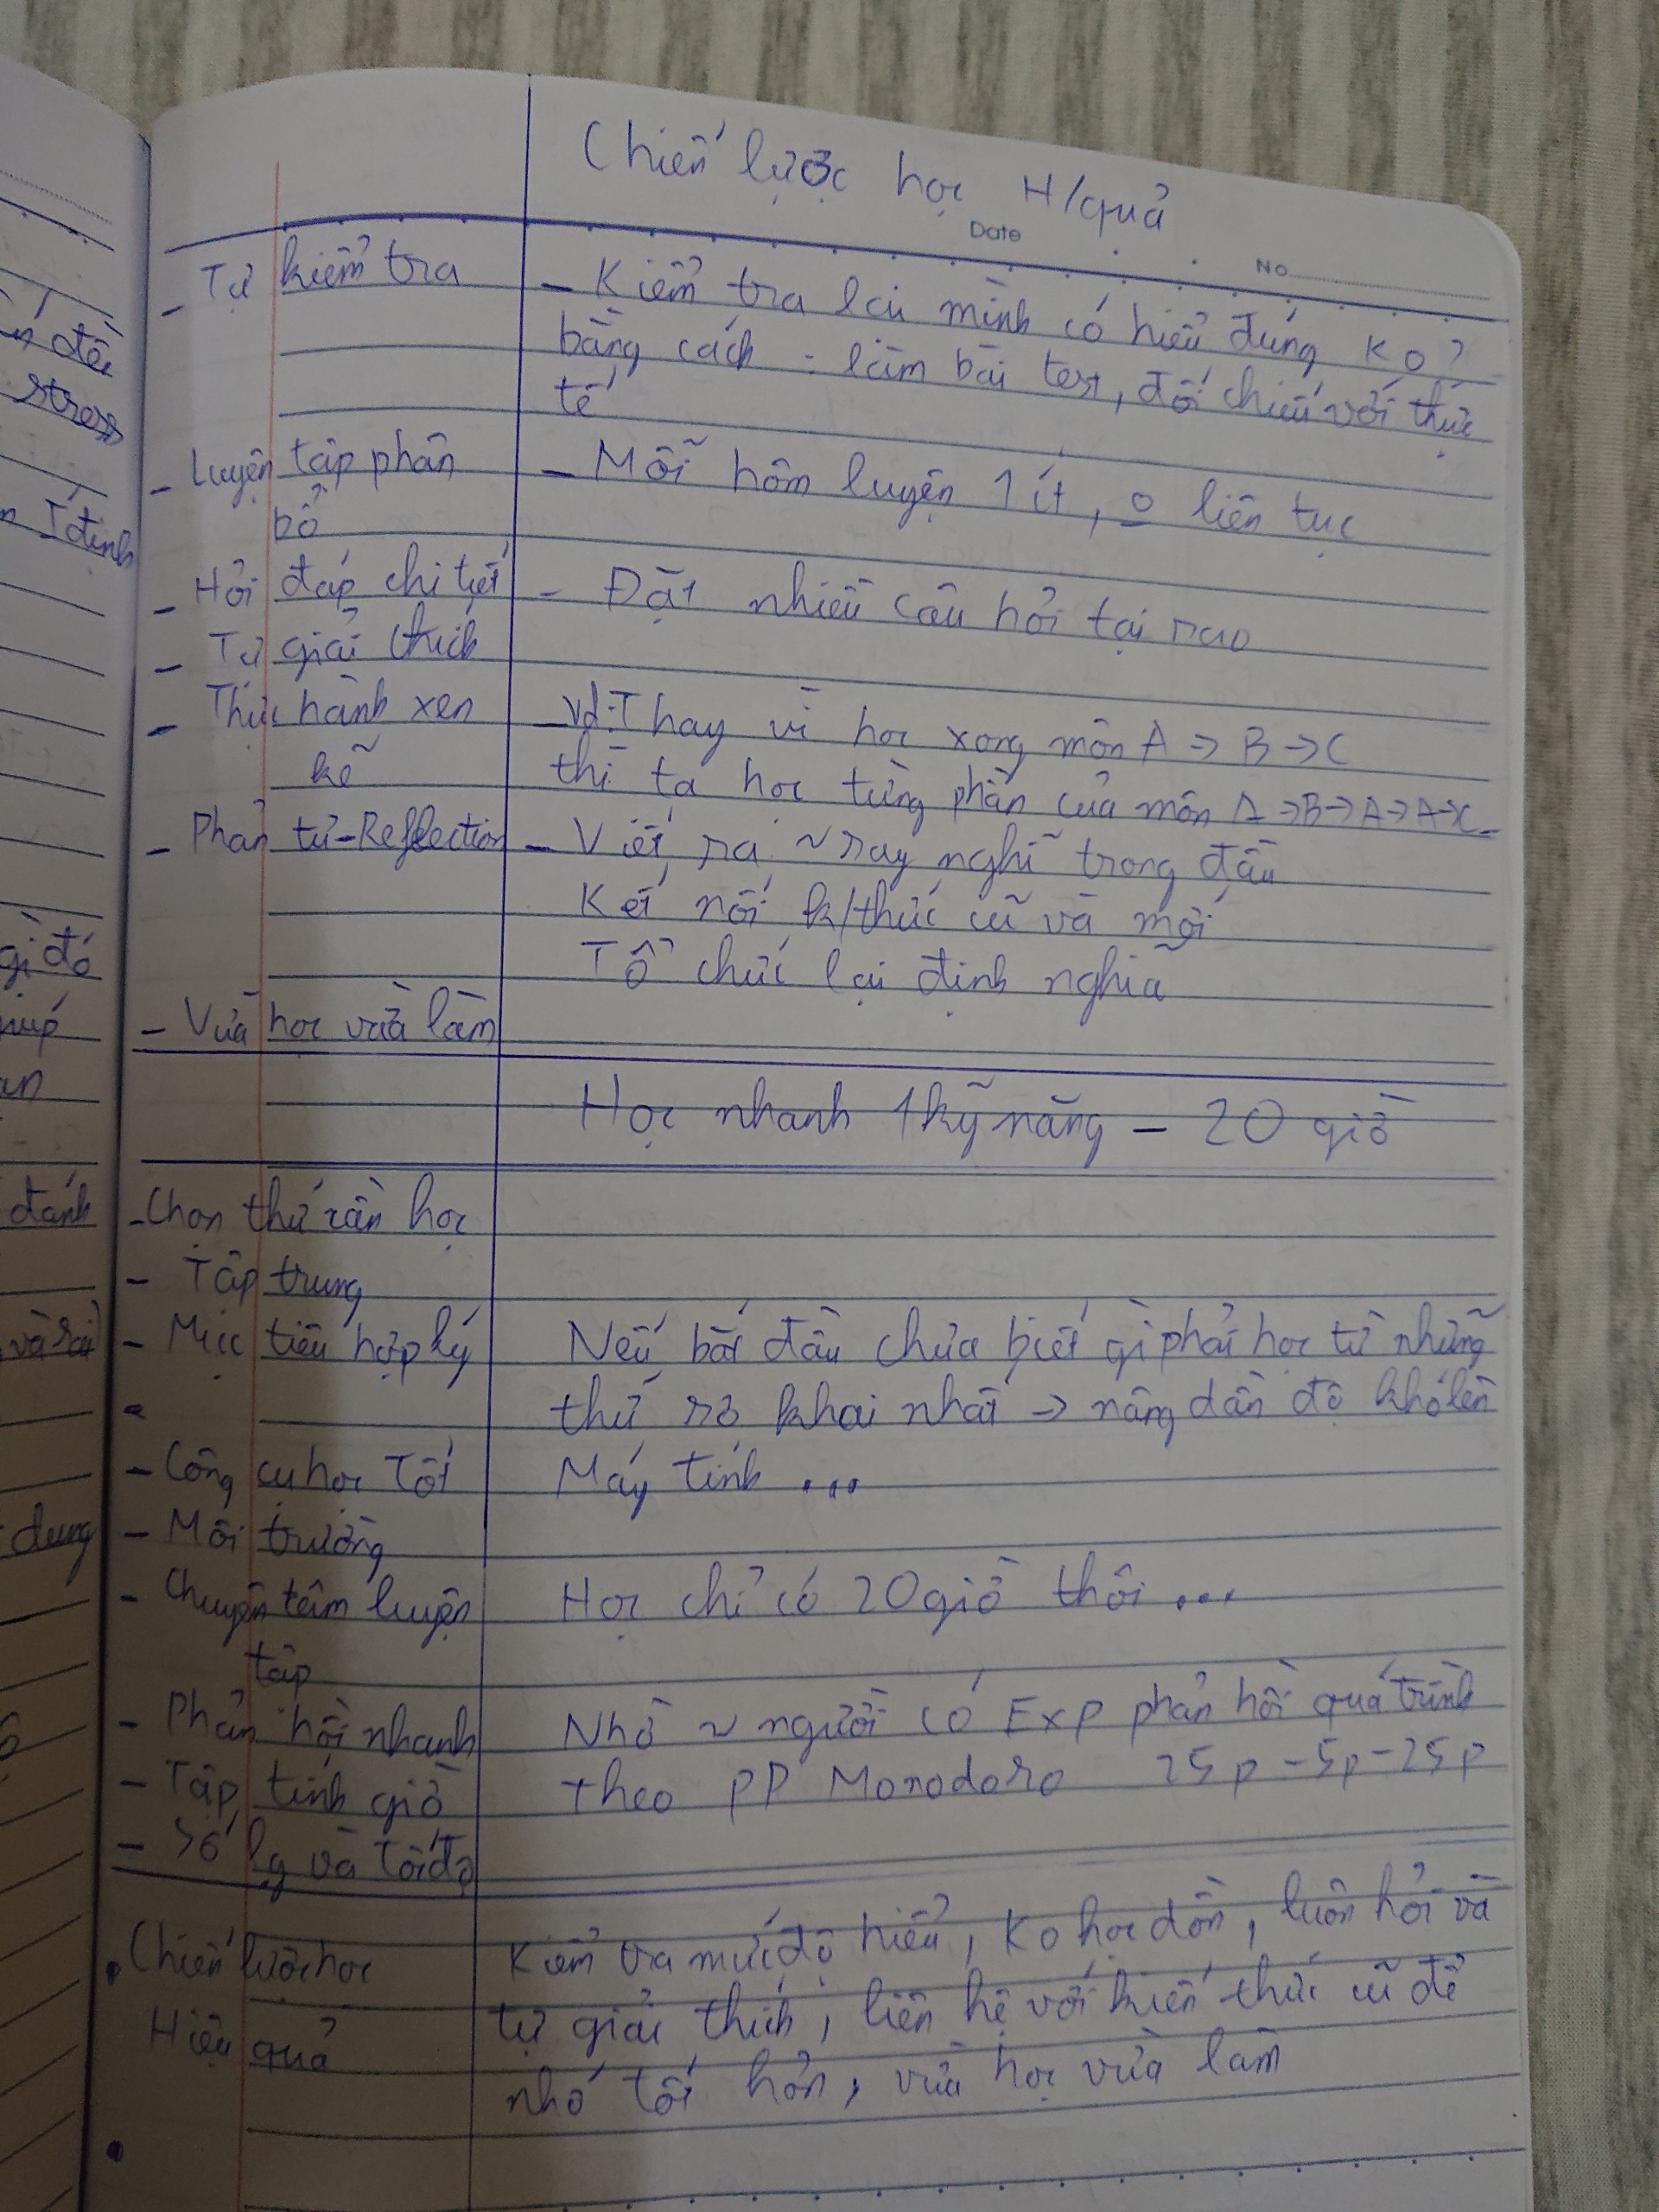 Chiến lược học H/quả
Date
No
- Tự kiểm tra - Kiểm tra lại mình có hiểu đúng Ko?
bằng cách : làm bài test, đối chiếu với thực
tế
- Luyện tập phân - Mỗi hôm luyện 1 ít, o liên tục
bổ
- Hỏi đáp chi tiết - Đặt nhiều câu hỏi tại sao
- Tự giải thích
- Thực hành xen - Vd: Thay vì học xong môn A → B → C
kẽ thì ta học từng phần của môn A → B → A → A → C
- Phản tư - Reflection - Viết ra ~ suy nghĩ trong đầu
Kết nối k/thức cũ và mới
Tổ chức lại định nghĩa
- Vừa học vừa làm
Học nhanh 1 kỹ năng - 20 giờ
- Chọn thứ cần học
- Tập trung
- Mục tiêu hợp lý Nếu bắt đầu chưa biết gì phải học từ những
thứ sơ khai nhất → nâng dần độ khó lên
- Công cụ học Tốt Máy tính ...
- Môi trường
- Chuyên tâm luyện Học chỉ có 20 giờ thôi ...
tập
- Phản hồi nhanh Nhờ ~ người có Exp phản hồi quá trình
- Tập tính giờ Theo PP Monodoro 25p - 5p - 25p
- Số lg và Tốc độ
• Chiến lược học Kiểm tra mức độ hiểu, Ko học dồn, luôn hỏi và
Hiệu quả tự giải thích, liên hệ với kiến thức cũ để
nhớ tốt hơn, vừa học vừa làm
đến
stress
định
gì đó
giúp
đánh
và rồi
dung